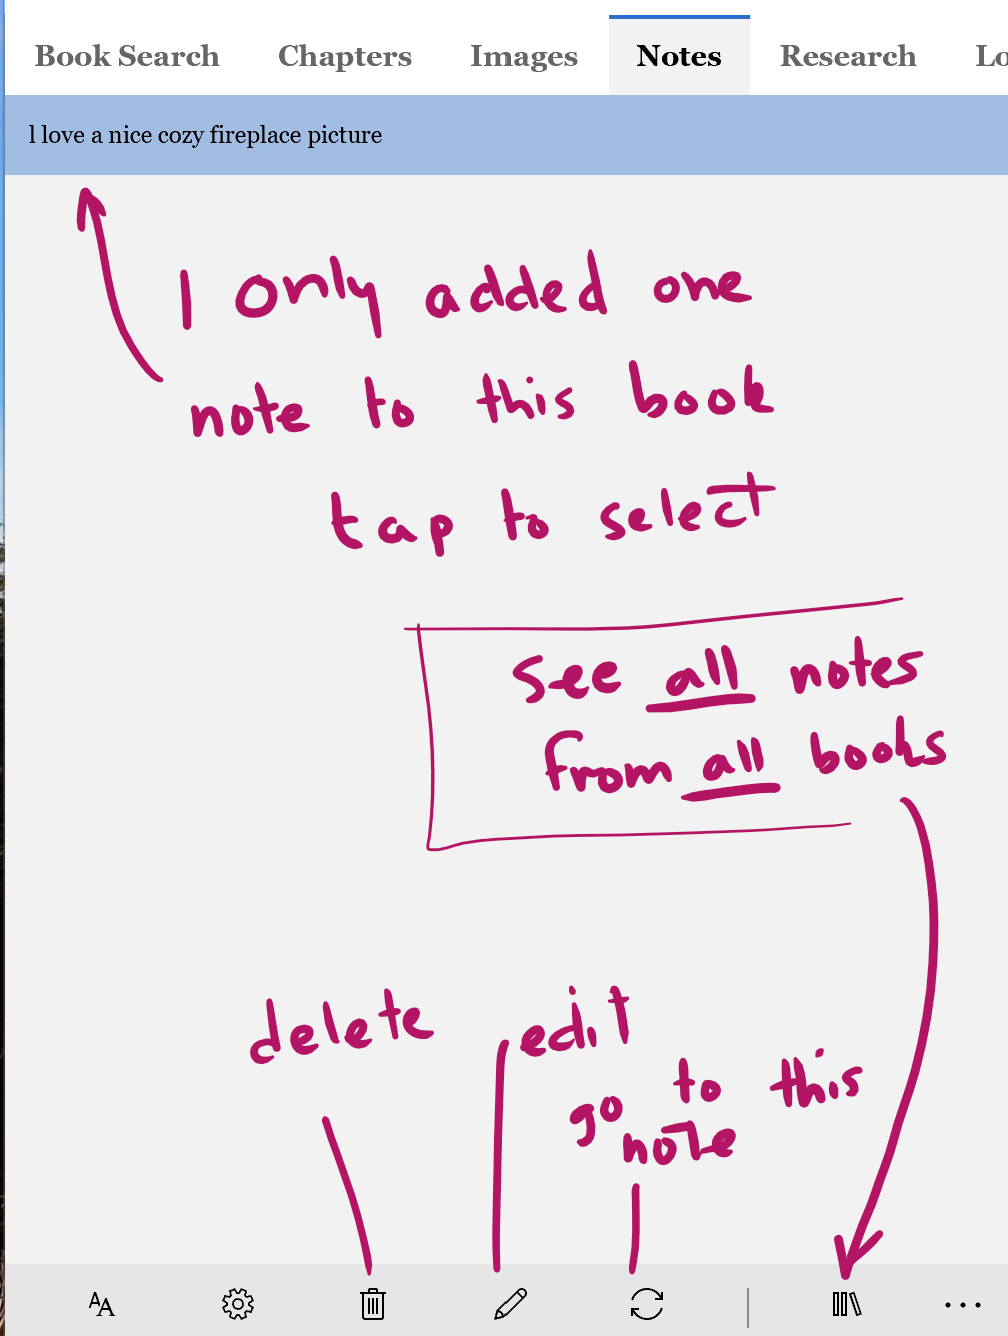 Book Search Chapters Images Notes Research Lo
I love a nice cozy fireplace picture
I only added one
note to this book
tap to select
see all notes
from all books
delete edit
go to this
note
AA